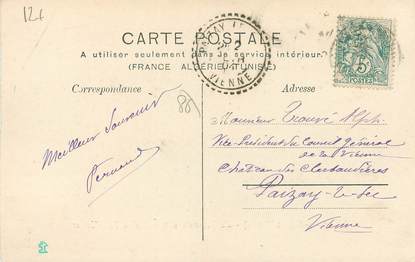 12f
CARTE POSTALE
A utiliser seulement dans le service intérieur.
(FRANCE ALGÉRIE-TUNISIE)
VIENNE
5
POSTES
Correspondance
Adresse
86
Meilleur Souvenir
Fernand
Monsieur Trouvé Alph.
Vice-Président du Conseil Général
de la Vienne
Château des Clarbaudières
Paizay-le-Sec
Vienne